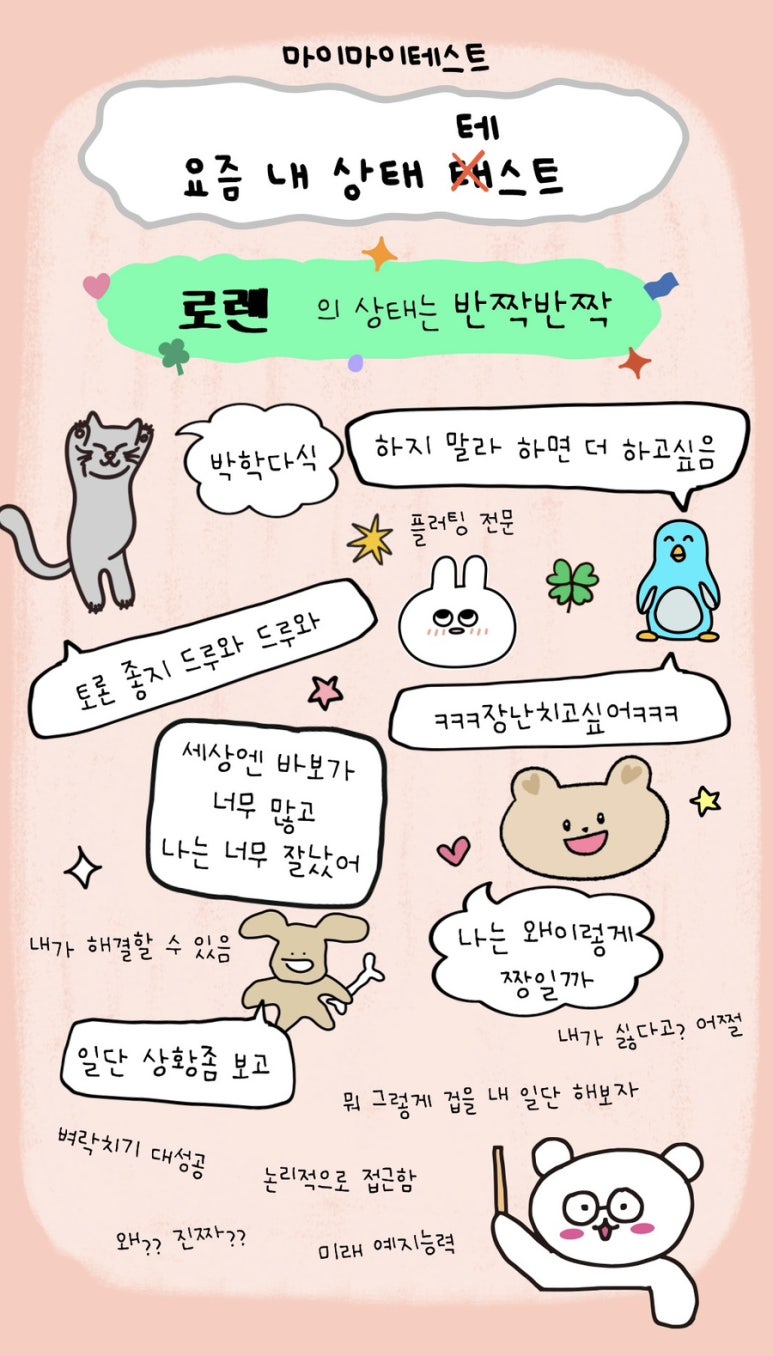 마이마이테스트
테
요즘 내 상태 태스트
로렌 의 상태는 반짝반짝
박학다식
하지 말라 하면 더 하고싶음
플러팅 전문
토론 좋지 드루와 드루와
ㅋㅋㅋ장난치고싶어ㅋㅋㅋ
세상엔 바보가
너무 많고
나는 너무 잘났어
나는 왜이렇게
짱일까
내가 해결할 수 있음
내가 싫다고? 어쩔
일단 상황좀 보고
뭐 그렇게 겁을 내 일단 해보자
벼락치기 대성공
논리적으로 접근함
왜?? 진짜??
미래 예지능력